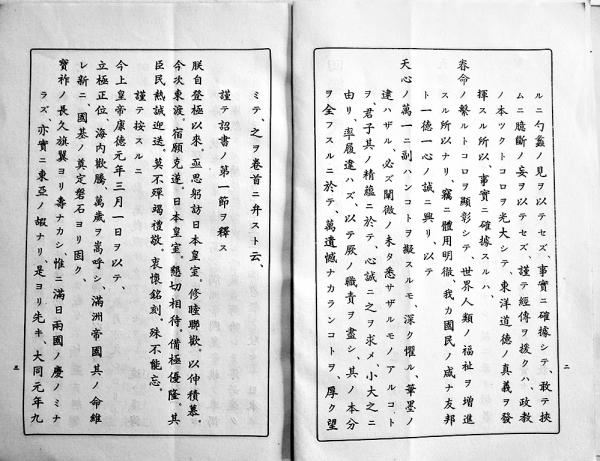 ルニ勺蠡ノ見ヲ以テセズ、事實ニ確據シテ、敢テ挾
ムニ臆斷ノ妄ヲ以テセズ、謹テ經傳ヲ援クハ、政教
ノ本ツクトコロヲ光大シテ、東洋道德ノ眞義ヲ發
揮スル所以、事實ニ確據スルハ、
眷命ノ繫ルトコロヲ顯彰シテ、世界人類ノ福祉ヲ增進
スル所以ナリ、竊ニ體用明徵、我カ國民ノ咸ナ友邦
ト一德一心ノ誠ニ興リ、以テ
天心ノ萬一ニ副ハンコトヲ擬スルモ、深ク懼ル、筆墨ノ
達ハザル、必ズ闡微ノ未タ悉サザルモノアルコト
ヲ、君子其ノ精蘊ニ於テ、心誠ニ之ヲ求メ小大之ニ
由リ、率履違ハズ、以テ厥ノ職責ヲ盡シ、其ノ本分
ヲ全フスルニ於テ、萬遺憾ナカランコトヲ、厚ク望
二
ミテ、之ヲ卷首ニ弁スト云、
謹テ詔書ノ第一節ヲ釋ス
朕自登極以來。亟思躬訪日本皇室。修睦聯歡。以伸積慕。
今次東渡。宿願克遂。日本皇室。懇切相待。備極優隆。其
臣民熱誠迎送。莫不殫竭禮敬。衷懷銘刻。殊不能忘。
謹テ按スルニ
今上皇帝康德元年三月一日ヲ以テ、
立極正位、海內歡騰、萬歲ヲ嵩呼シ、滿洲帝國其ノ命維
レ新ニ、國基ノ奠定磐石ヨリ固ク、
寶祚ノ長久旗翼ヨリ壽ナカシ、惟ニ滿日兩國ノ慶ノミナ
ラズ、亦實ニ東亞ノ嘏ナリ、是ヨリ先キ、大同元年九
三